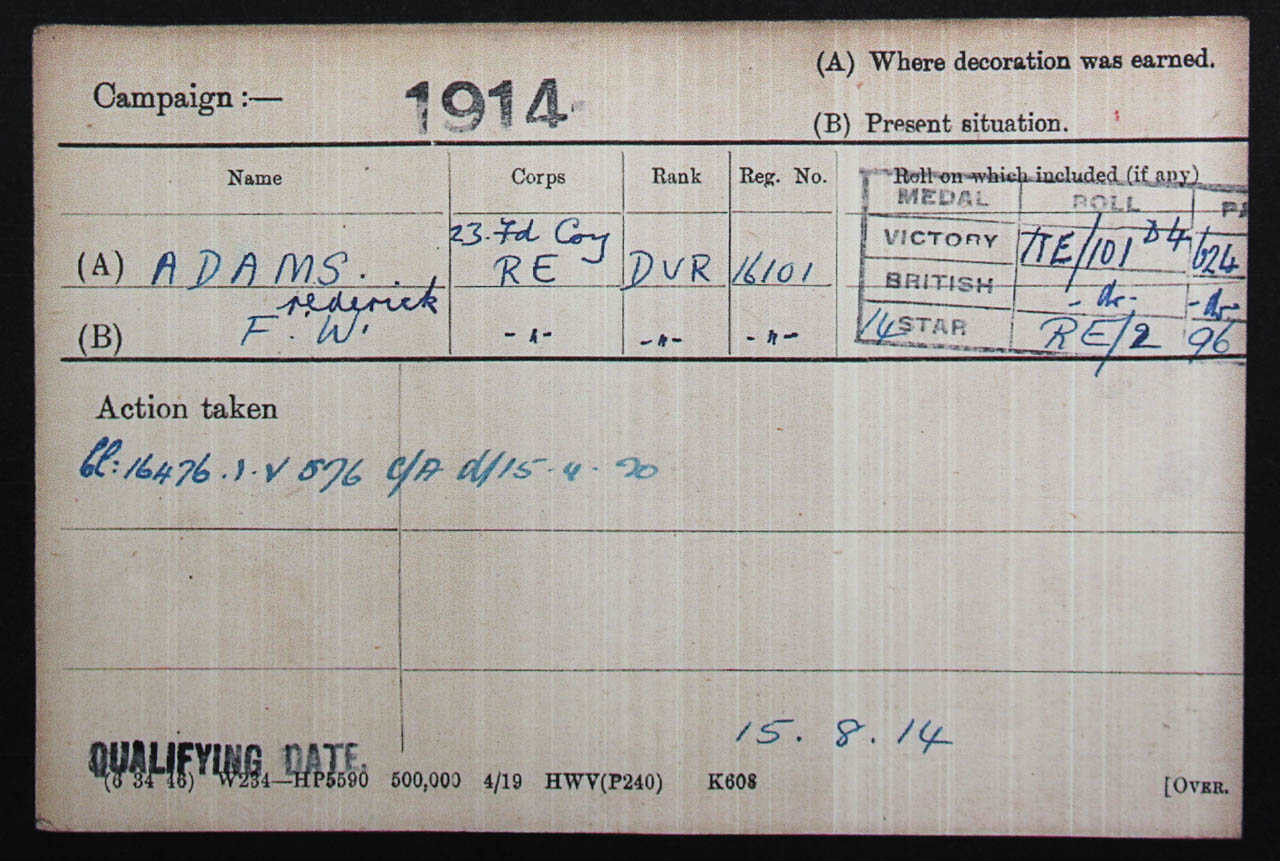 (A) Where decoration was earned.
Campaign :— 1914
(B) Present situation.
Name Corps Rank Reg. No. Roll on which included (if any)
MEDAL ROLL PA
23. Fd Coy
(A) ADAMS. RE DVR 16101 VICTORY RE/101 B4 624
rederick BRITISH - do - - do -
(B) F. W. - " - - " - - " - 14 STAR RE/2 96
Action taken
16476 V 576 d/15 . 4 . 20
15 . 8 . 14
QUALIFYING DATE.
(6 34 46) W234—HP5590 500,000 4/19 HWV(P240) K608 [OVER.